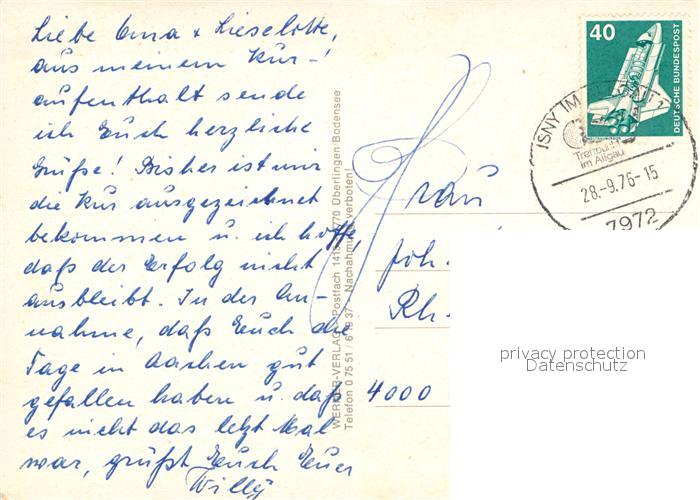 Liebe Oma + Lieselotte,
aus meinem Kur-
aufenthalt sende
ich Euch herzliche
Grüße! Bisher ist mir
die Kur ausgezeichnet
bekommen u. ich hoffe,
daß der Erfolg nicht
ausbleibt. In der An-
nahme, daß Euch die
Tage in Aachen gut
gefallen haben u. daß
es nicht das letzt Mal
war, grüßt Euch Euer
Willy
Postfach 1410 7770 Überlingen/Bodensee
Telefon 0 75 51 / 6 19 37 - Nachahmung verboten!
40
DEUTSCHE BUNDESPOST
ISNY IM
Treffpunkt
im Allgäu
28.-9.76-15
7972
Frau
Joh.
Rh.
4000
privacy protection
Datenschutz